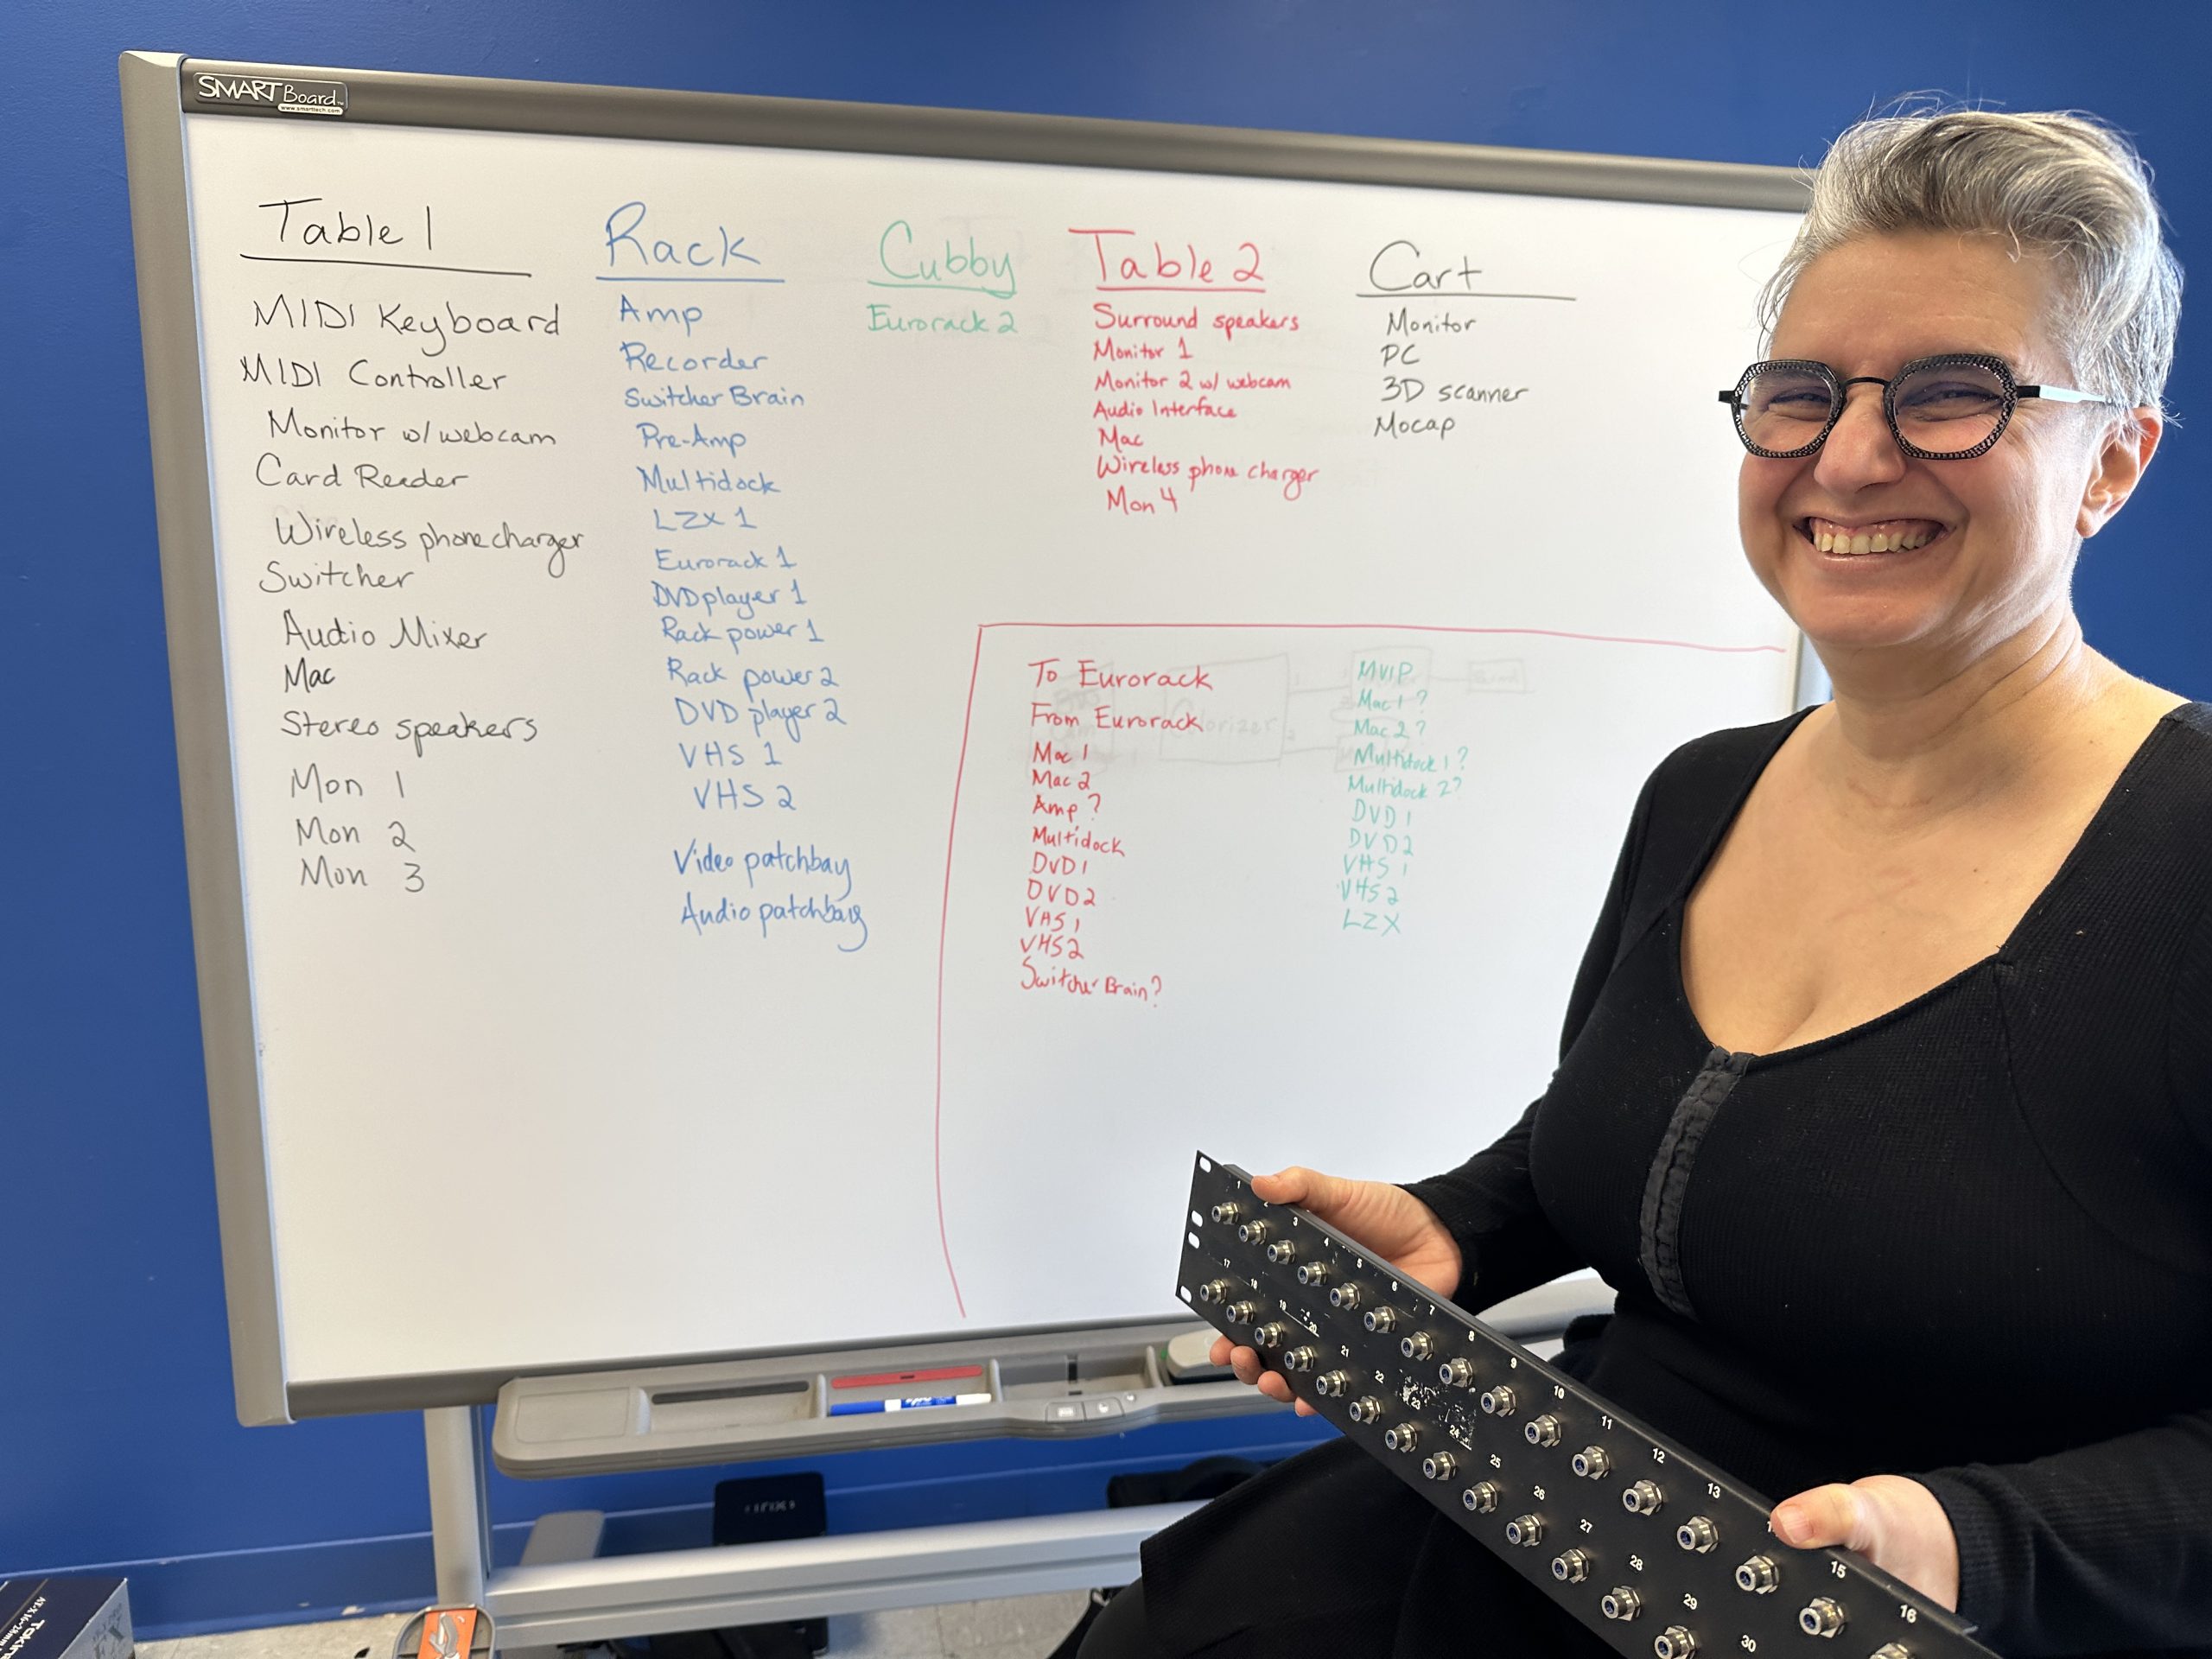 SMART Board
www.smarttech.com
Table 1
MIDI Keyboard
MIDI Controller
Monitor w/ webcam
Card Reader
Wireless phone charger
Switcher
Audio Mixer
Mac
Stereo speakers
Mon 1
Mon 2
Mon 3
Rack
Amp
Recorder
Switcher Brain
Pre-Amp
Multidock
LZX 1
Eurorack 1
DVD player 1
Rack power 1
Rack power 2
DVD player 2
VHS 1
VHS 2
Video patchbay
Audio patchbay
Cubby
Eurorack 2
Table 2
Surround speakers
Monitor 1
Monitor 2 w/ webcam
Audio Interface
Mac
Wireless phone charger
Mon 4
Cart
Monitor
PC
3D scanner
Mocap
To Eurorack
From Eurorack
Mac 1
Mac 2
Amp ?
Multidock
DVD 1
DVD 2
VHS 1
VHS 2
Switcher Brain?
MVIP
Mac 1 ?
Mac 2 ?
Multidock 1 ?
Multidock 2?
DVD 1
DVD 2
VHS 1
VHS 2
LZX
Colorizer
1 2 3 4 5 6 7 8 9 10 11 12 13 15 16
17 18 19 20 21 22 23 24 25 26 27 28 29 30